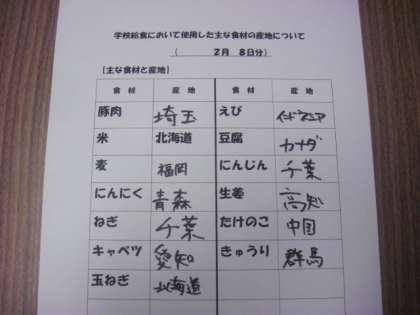 学校給食において使用した主な食材の産地について
（ 2月 8日分）
【主な食材と産地】
食材 産地 食材 産地
豚肉 埼玉 えび インドネシア
米 北海道 豆腐 カナダ
麦 福岡 にんじん 千葉
にんにく 青森 生姜 高知
ねぎ 千葉 たけのこ 中国
キャベツ 愛知 きゅうり 群馬
玉ねぎ 北海道